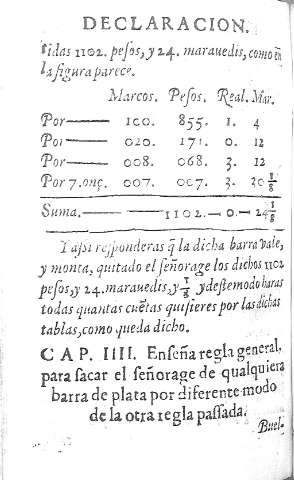 DECLARACION.
tidas 1102. pesos, y 24. marauedis, como en
la figura parece.
Marcos. Pesos. Real. Mar.
Por—— 100. 855. 1. 4
Por—— 020. 171. 0. 12
Por—— 008. 068. 3. 12
Por 7. onç. 007. 007. 3. 30 1/8
Suma.—— —1102.—0.—24 1/8
Y assi responderas q̃ la dicha barra vale,
y monta, quitado el señorage los dichos 1102
pesos, y 24. marauedis, y 1/8 y deste modo haras
todas quantas cuẽtas quisieres por las dichas
tablas, como queda dicho.
CAP. IIII. Enseña regla general,
para sacar el señorage de qualquiera
barra de plata por diferente modo
de la otra regla passada.
Buel-